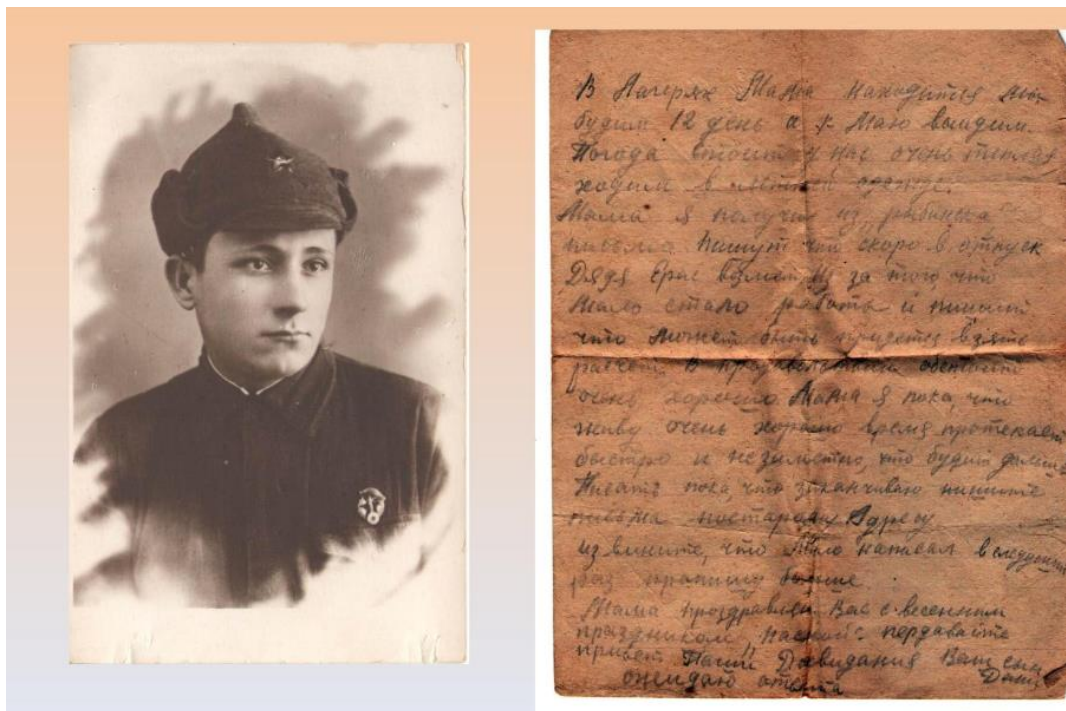 В Лагерях Мама находится мы
будим 12 день а к Маю выидим.
Погода стоит у нас очень теплая
ходим в летней одежде.
Мама я получил из рыбинска
письма пишут что скоро в отпуск
Дядя возмет за того что
мало стало работы и пишит
что может быть придется взять
расчет. В продовольствии
очень хорошо. Мама я пока, что
живу очень хорошо время протекает
быстро и незаметно, что будит дальше
Писать пока, что заканчиваю пишите
письма постарому Адресу
извините, что Мало написал в следующий
раз пропишу больше.
Мама проздравляю Вас с весенним
праздником, пердавайте
привет Довидания Ваш сын
ожидаю ответа